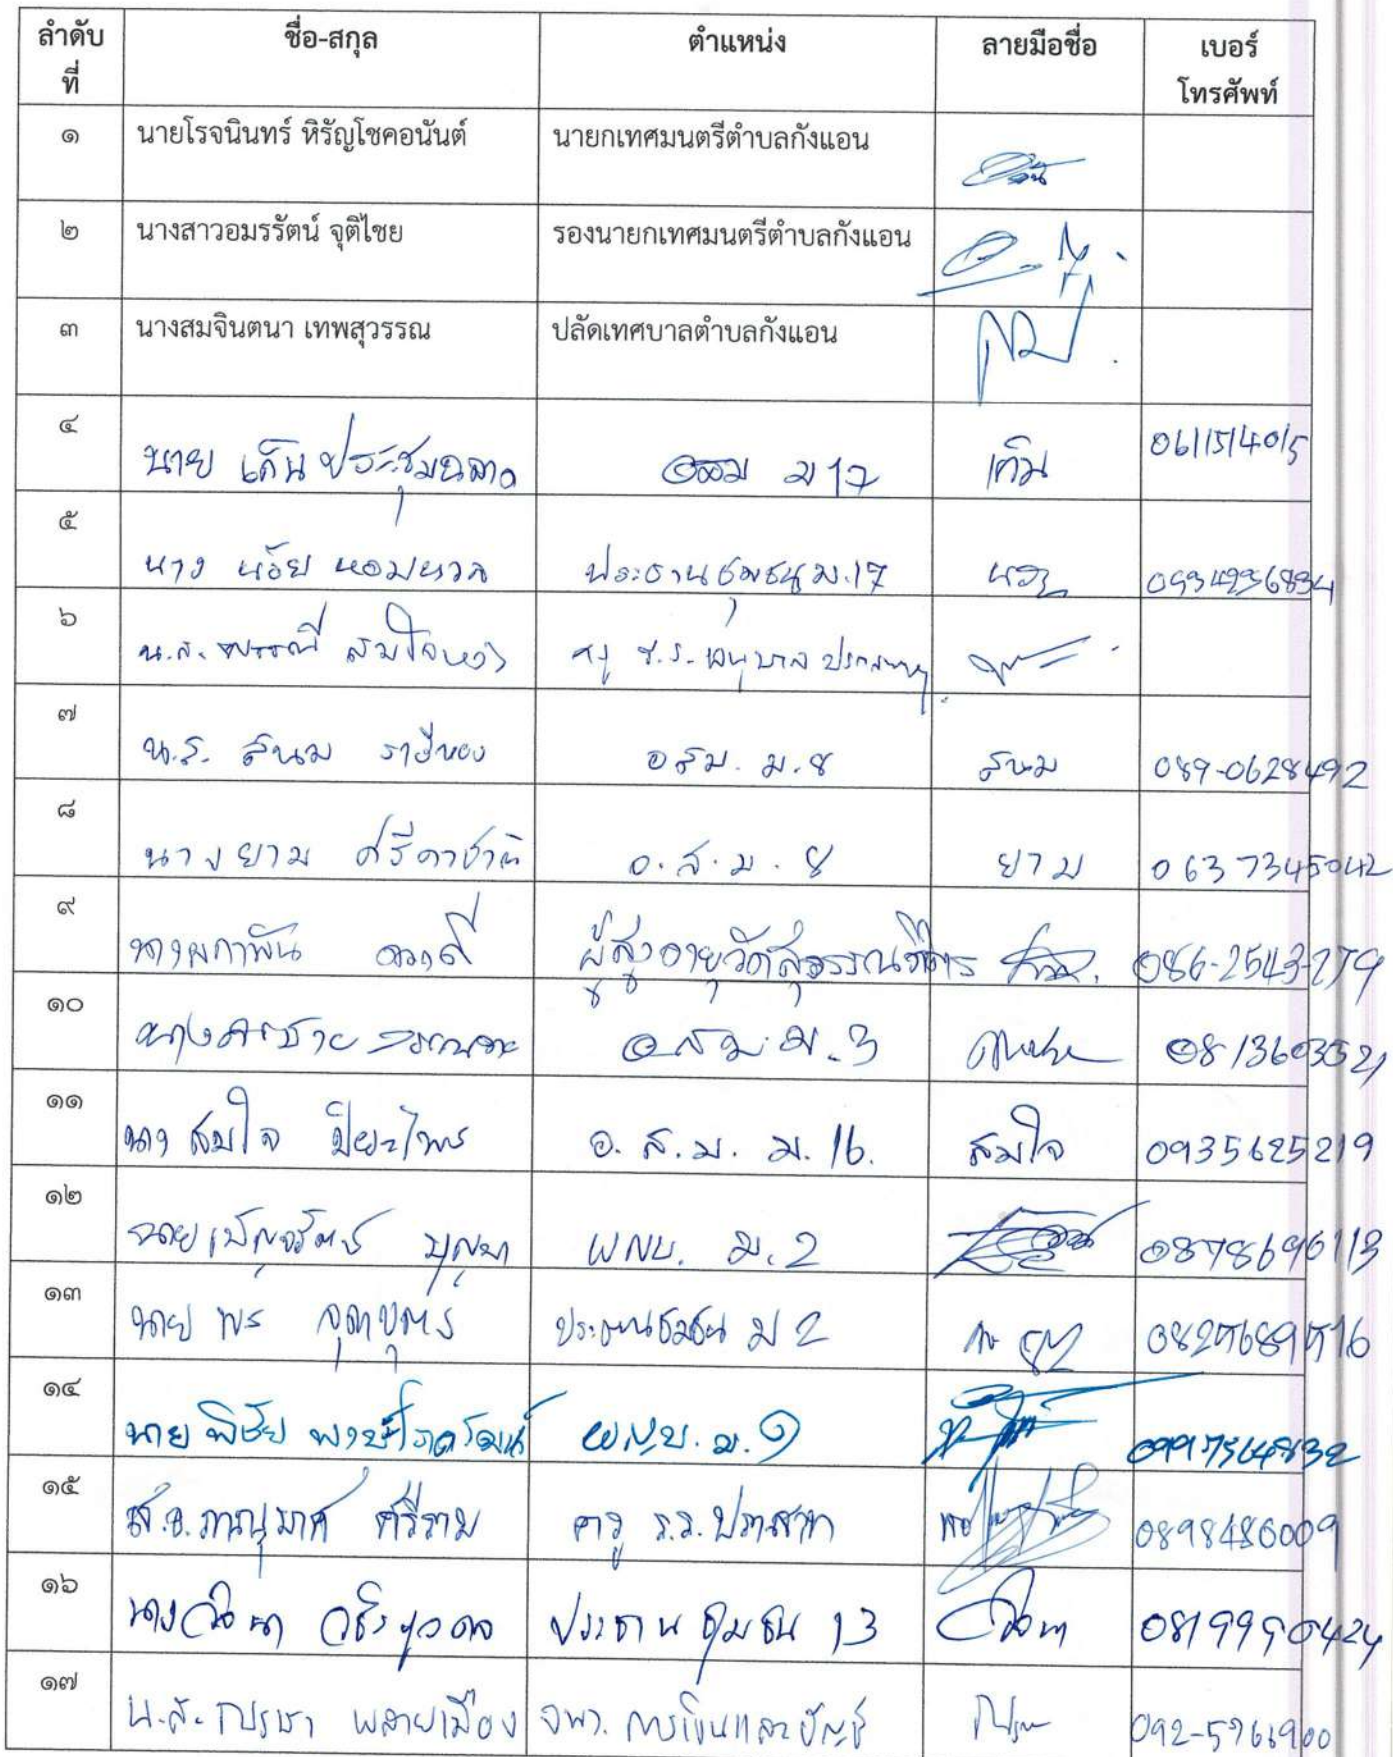 ลำดับที่ ชื่อ-สกุล ตำแหน่ง ลายมือชื่อ เบอร์โทรศัพท์
๑ นายโรจนินทร์ หิรัญโชคอนันต์ นายกเทศมนตรีตำบลกังแอน
๒ นางสาวอมรรัตน์ จุติไชย รองนายกเทศมนตรีตำบลกังแอน
๓ นางสมจินตนา เทพสุวรรณ ปลัดเทศบาลตำบลกังแอน
๔ นาย เต็ม ประชุมฉลาด ม 17 เต็ม 0611514015
๕ นาง น้อย หอมหวล ประธานชุมชน ม.17 0934236834
๖ น.ส. พรรณี สมใจหวัง ครู ร.ร. อนุบาล ปราสาท
๗ น.ส. สนม อสม. ม.8 สนม 089-0628492
๘ นางยาม ศรีคาชาติ อ.ส.ม. 8 ยาม 0637345042
๙ นางผกาพัน ดวงดี ผู้สูงอายุวัดสุวรรณวิจิตร 086-2543-279
๑๐ อสม. ม.3 0813603521
๑๑ นาง สมใจ ปิยะไพร อ.ส.ม. ม.16. สมใจ 0935625219
๑๒ นายเบ็ญจรัตน์ บุญมา ผญบ. ม.2 0878696113
๑๓ นาย พร จุดาบุตร ประธานชุมชน ม 2 0825689516
๑๔ นาย พิชัย ผญบ. ม. ๑ 0997564832
๑๕ ส.อ.ภาณุมาศ ศรีราม ครู ร.ร. ปราสาท 0898486009
๑๖ ประธาน ชุมชน 13 0819990424
๑๗ น.ส. ณปรชา พลายเมือง จพง. การเงินและบัญชี 092-5961900